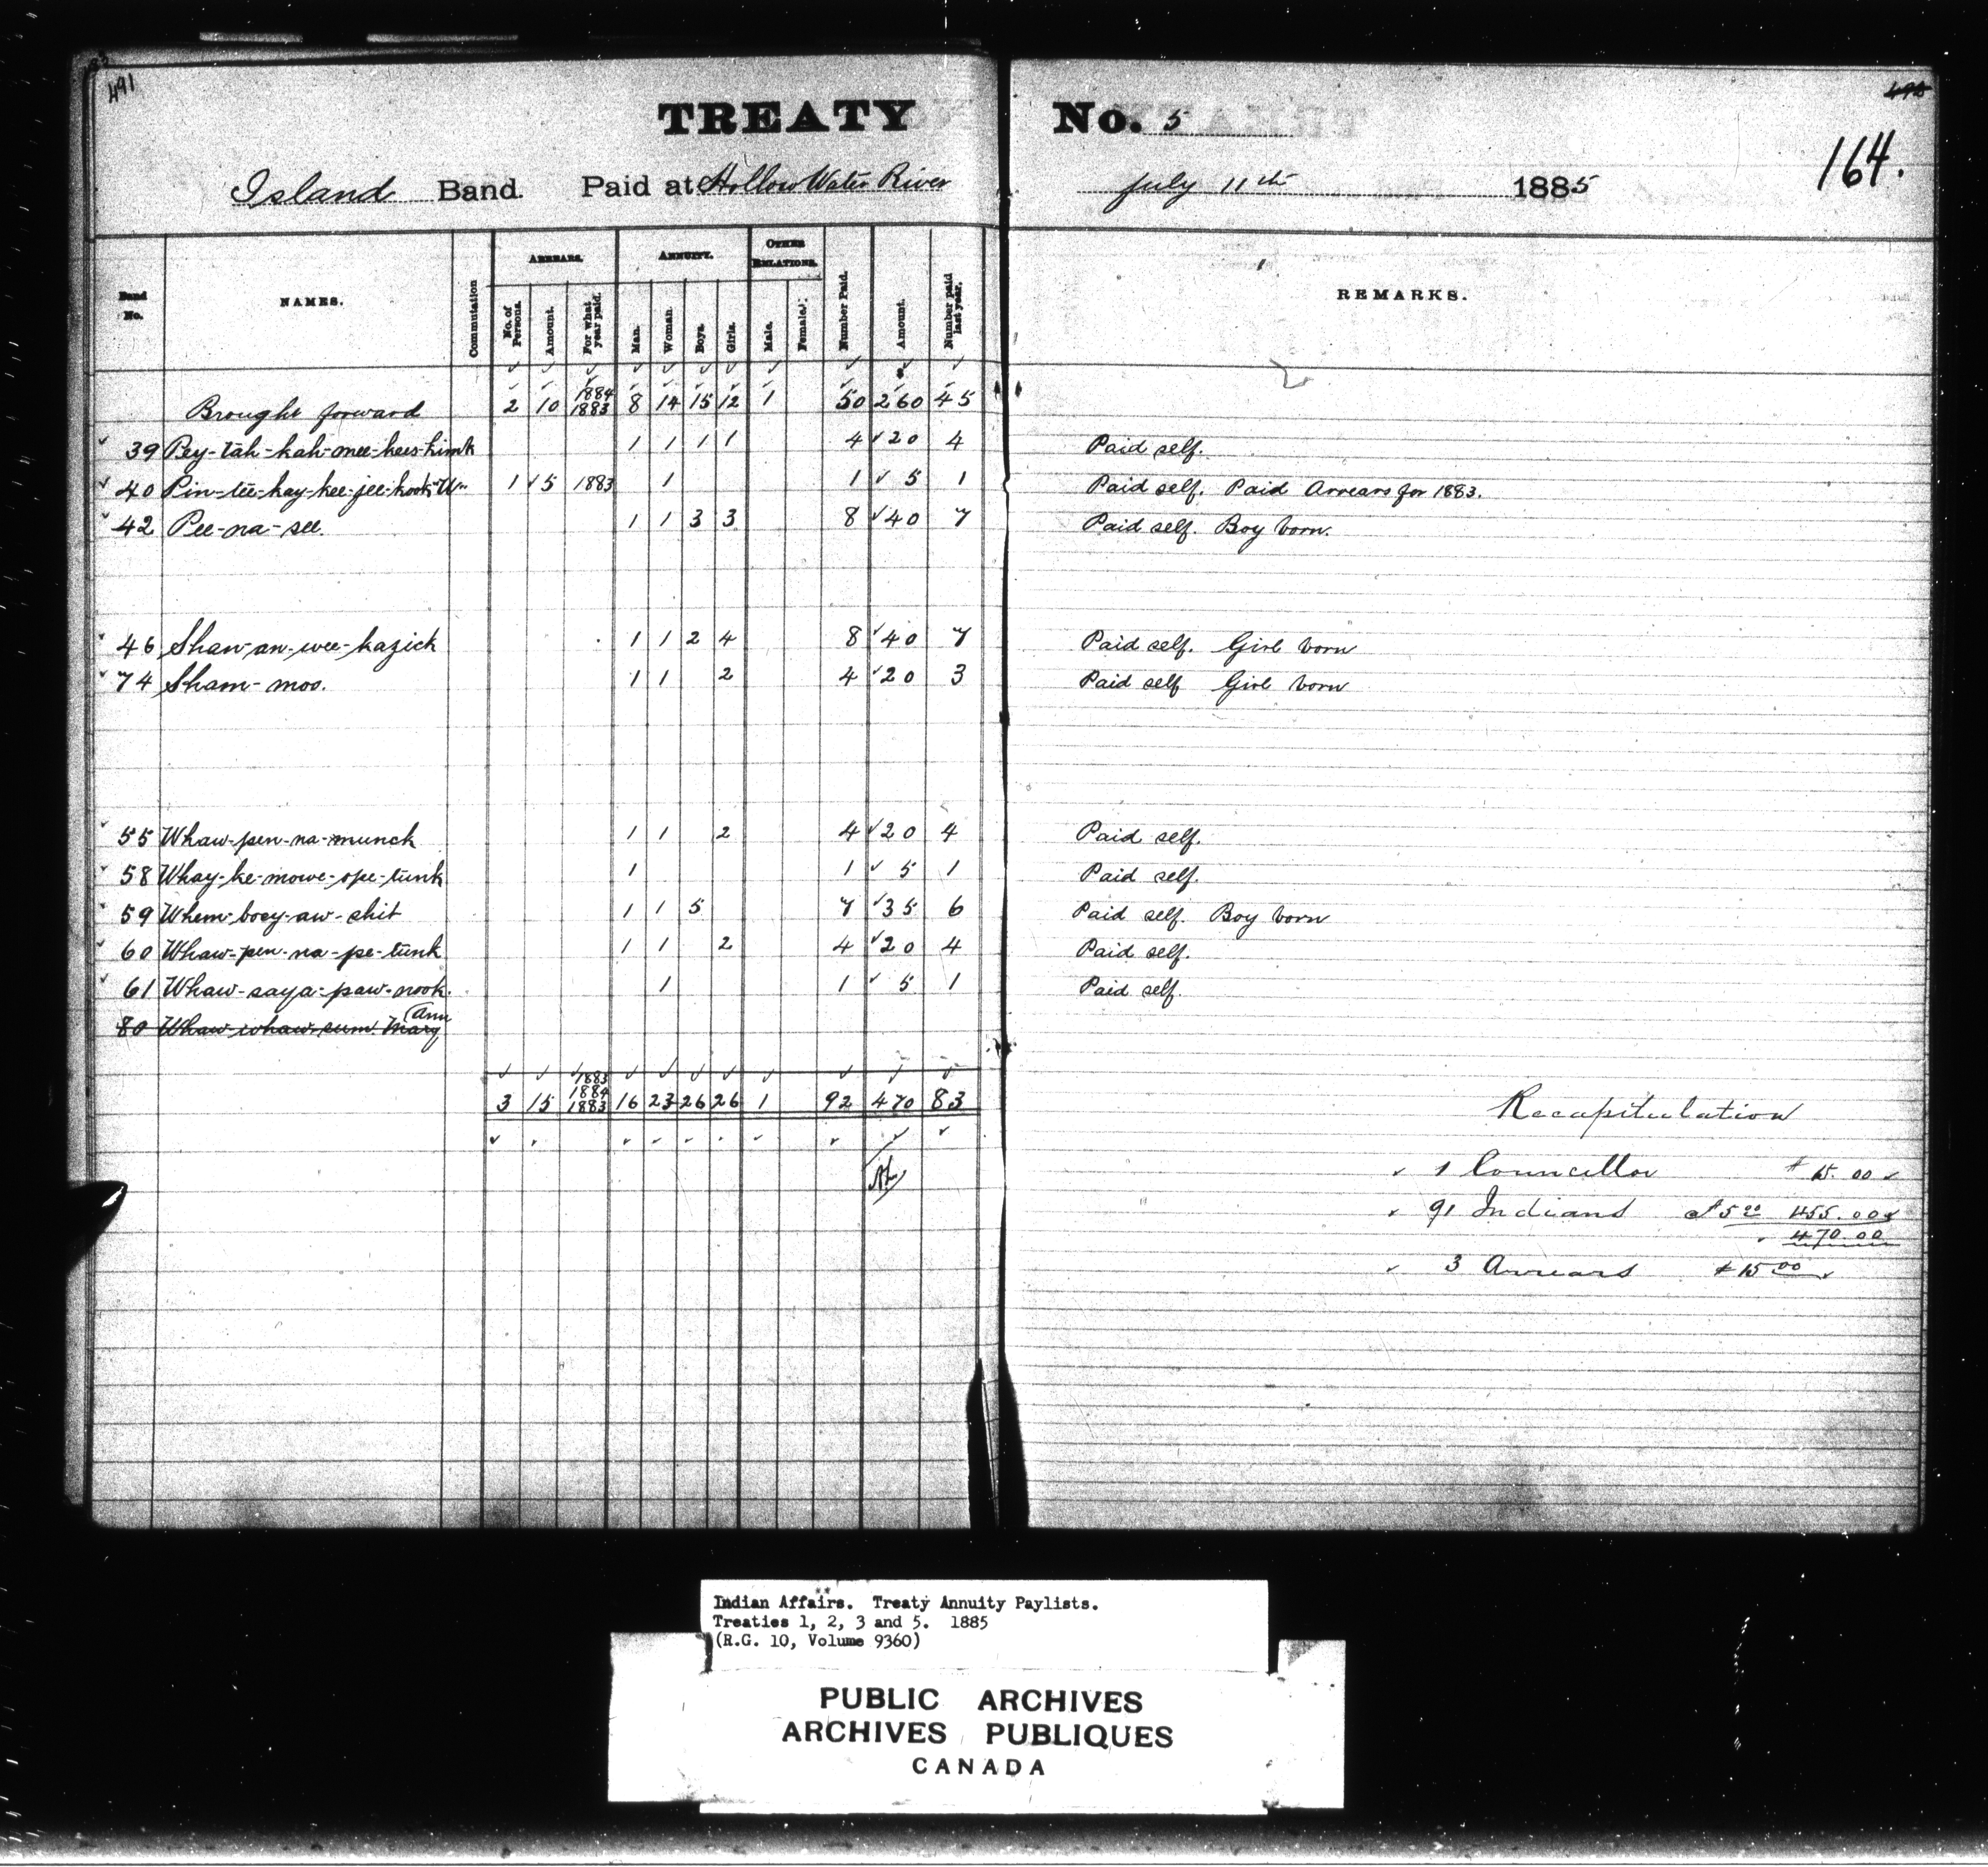 491
TREATY No. 5
164.
Island Band. Paid at Hollow Water River July 11th 1885
Band No. NAMES. Commutation ARREARS. No. of Persons. Amount. For what year paid. ANNUITY. Man. Woman. Boys. Girls. OTHER RELATIONS. Male. Female. Number Paid. Amount. Number paid last year. REMARKS.
Brought forward 2 10 1884 1883 8 14 15 12 1 50 260 45
39 Pey-tah-kah-mee-kees-kimk 1 1 1 1 4 20 4 Paid self.
40 Pin-tee-kay-kee-jee-kook Wn 1 5 1883 1 1 5 1 Paid self. Paid Arrears for 1883.
42 Pee-na-see. 1 1 3 3 8 40 7 Paid self. Boy born.
46 Shaw-an-wee-kazick 1 1 2 4 8 40 7 Paid self. Girl born
74 Sham-moo. 1 1 2 4 20 3 Paid self Girl born
55 Whaw-pen-na-munck 1 1 2 4 20 4 Paid self.
58 Whay-ke-mowe-ope-tunk 1 1 5 1 Paid self.
59 Whem-boey-aw-shit 1 1 5 7 35 6 Paid self. Boy born
60 Whaw-pen-na-pe-tunk 1 1 2 4 20 4 Paid self.
61 Whaw-saya-paw-nook. 1 1 5 1 Paid self.
80 Whaw-whaw-sum Mary Ann
3 15 1883 1884 1883 16 23 26 26 1 92 470 83
Recapitulation
1 Councellor $15.00
91 Indians @ $5.00 455.00
470.00
3 Arrears $15.00
Indian Affairs. Treaty Annuity Paylists.
Treaties 1, 2, 3 and 5. 1885
(R.G. 10, Volume 9360)
PUBLIC ARCHIVES
ARCHIVES PUBLIQUES
CANADA